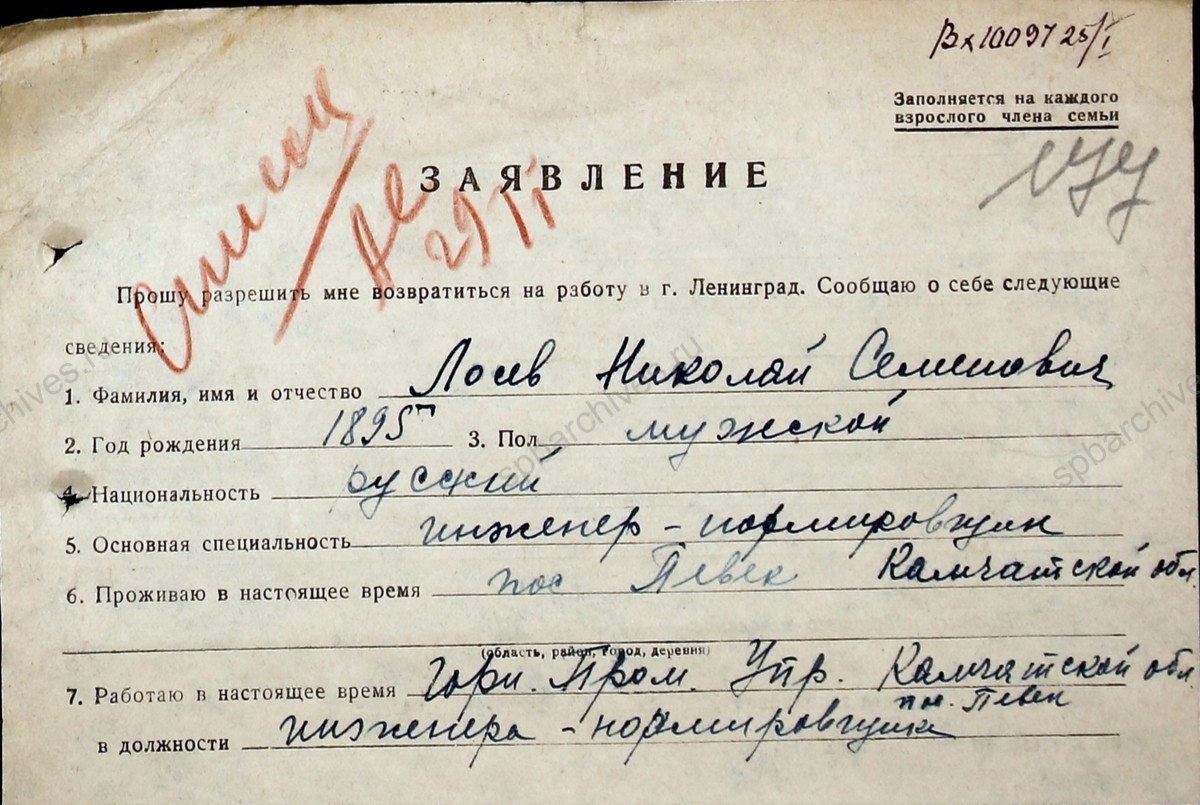 Вх 10097 25/I
Заполняется на каждого
взрослого члена семьи
ЗАЯВЛЕНИЕ
29 II
Прошу разрешить мне возвратиться на работу в г. Ленинград. Сообщаю о себе следующие
сведения:
1. Фамилия, имя и отчество Лосев Николай Семенович
2. Год рождения 1895 г 3. Пол мужской
4. Национальность русский
5. Основная специальность инженер - нормировщик
6. Проживаю в настоящее время пос Певек Камчатской обл.
(область, район, город, деревня)
7. Работаю в настоящее время Горн. Пром. Упр. Камчатской обл.
пос. Певек
в должности инженера - нормировщика
spbarchives.ru
spbarchives.ru
spbarchives